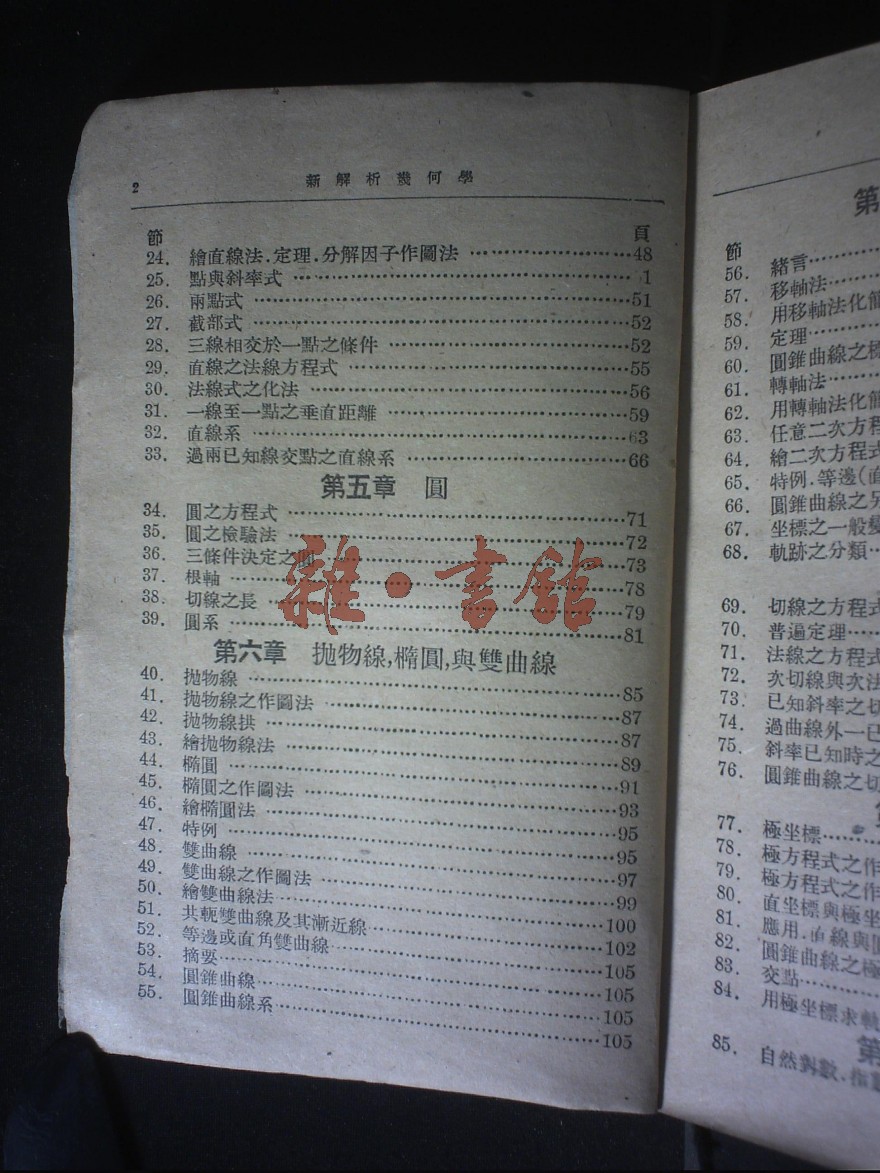 2
新解析幾何學
節 頁
24. 繪直線法.定理.分解因子作圖法 ……48
25. 點與斜率式 ……1
26. 兩點式 ……51
27. 截部式 ……52
28. 三線相交於一點之條件 ……52
29. 直線之法線方程式 ……55
30. 法線式之化法 ……56
31. 一線至一點之垂直距離 ……59
32. 直線系 ……63
33. 過兩已知線交點之直線系 ……66
第五章 圓
34. 圓之方程式 ……71
35. 圓之檢驗法 ……72
36. 三條件決定之圓 ……73
37. 根軸 ……78
38. 切線之長 ……79
39. 圓系 ……81
第六章 拋物線,橢圓,與雙曲線
40. 拋物線 ……85
41. 拋物線之作圖法 ……87
42. 拋物線拱 ……87
43. 繪拋物線法 ……89
44. 橢圓 ……91
45. 橢圓之作圖法 ……93
46. 繪橢圓法 ……95
47. 特例 ……95
48. 雙曲線 ……97
49. 雙曲線之作圖法 ……99
50. 繪雙曲線法 ……100
51. 共軛雙曲線及其漸近線 ……102
52. 等邊或直角雙曲線 ……105
53. 摘要 ……105
54. 圓錐曲線 ……105
55. 圓錐曲線系 ……105
雜·書館
第
節
56. 緒言……
57. 移軸法……
58. 用移軸法化簡
59. 定理……
60. 圓錐曲線之標
61. 轉軸法……
62. 用轉軸法化簡
63. 任意二次方程
64. 繪二次方程式
65. 特例.等邊(直
66. 圓錐曲線之另
67. 坐標之一般變
68. 軌跡之分類…
69. 切線之方程式
70. 普遍定理……
71. 法線之方程式
72. 次切線與次法
73. 已知斜率之切
74. 過曲線外一已
75. 斜率已知時之
76. 圓錐曲線之切
77. 極坐標……
78. 極方程式之作
79. 極方程式之作
80. 直坐標與極坐
81. 應用.直線與圓
82. 圓錐曲線之極
83. 交點……
84. 用極坐標求軌
第
85. 自然對數.指數